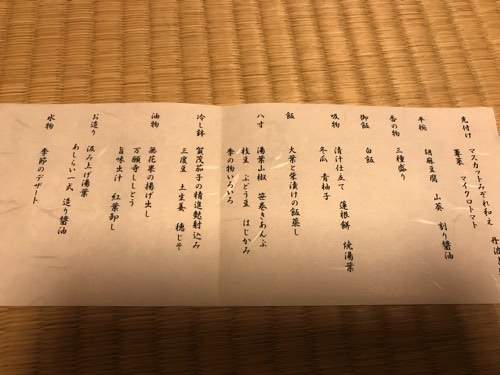 先付け
マスカットみぞれ和え
マイクロトマト
平椀
胡麻豆腐　山葵　割り醤油
香の物
三種盛り
御飯
白飯
吸物
清汁仕立て　蓮根餅　焼湯葉
冬瓜　青柚子
飯
大葉と柴漬けの飯蒸し
八寸
湯葉山椒　笹巻きあんぷ
枝豆　ぶどう豆　はじかみ
季の物いろいろ
冷し鉢
賀茂茄子の精進麩射込み
三度豆　土生姜　穂じそ
油物
無花果の揚げ出し
万願寺ししとう
旨味出汁　紅葉卸し
お造り
汲み上げ湯葉
あしらい一式　造り醤油
水物
季節のデザート